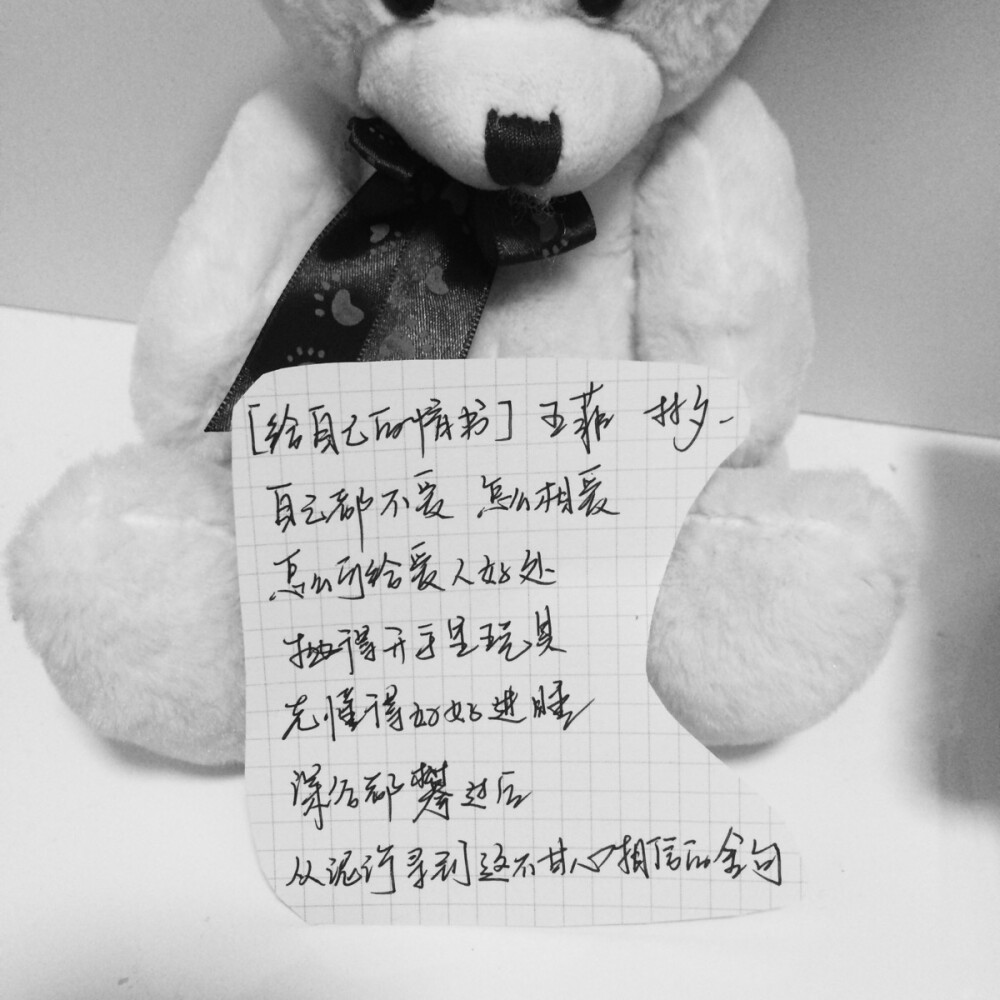 [给自己的情书] 王菲 林夕
自己都不爱 怎么相爱
怎么可给爱人好处
抛得开手里玩具
先懂得好好进睡
深谷都攀过后
从泥污寻到这不甘心相信的金句